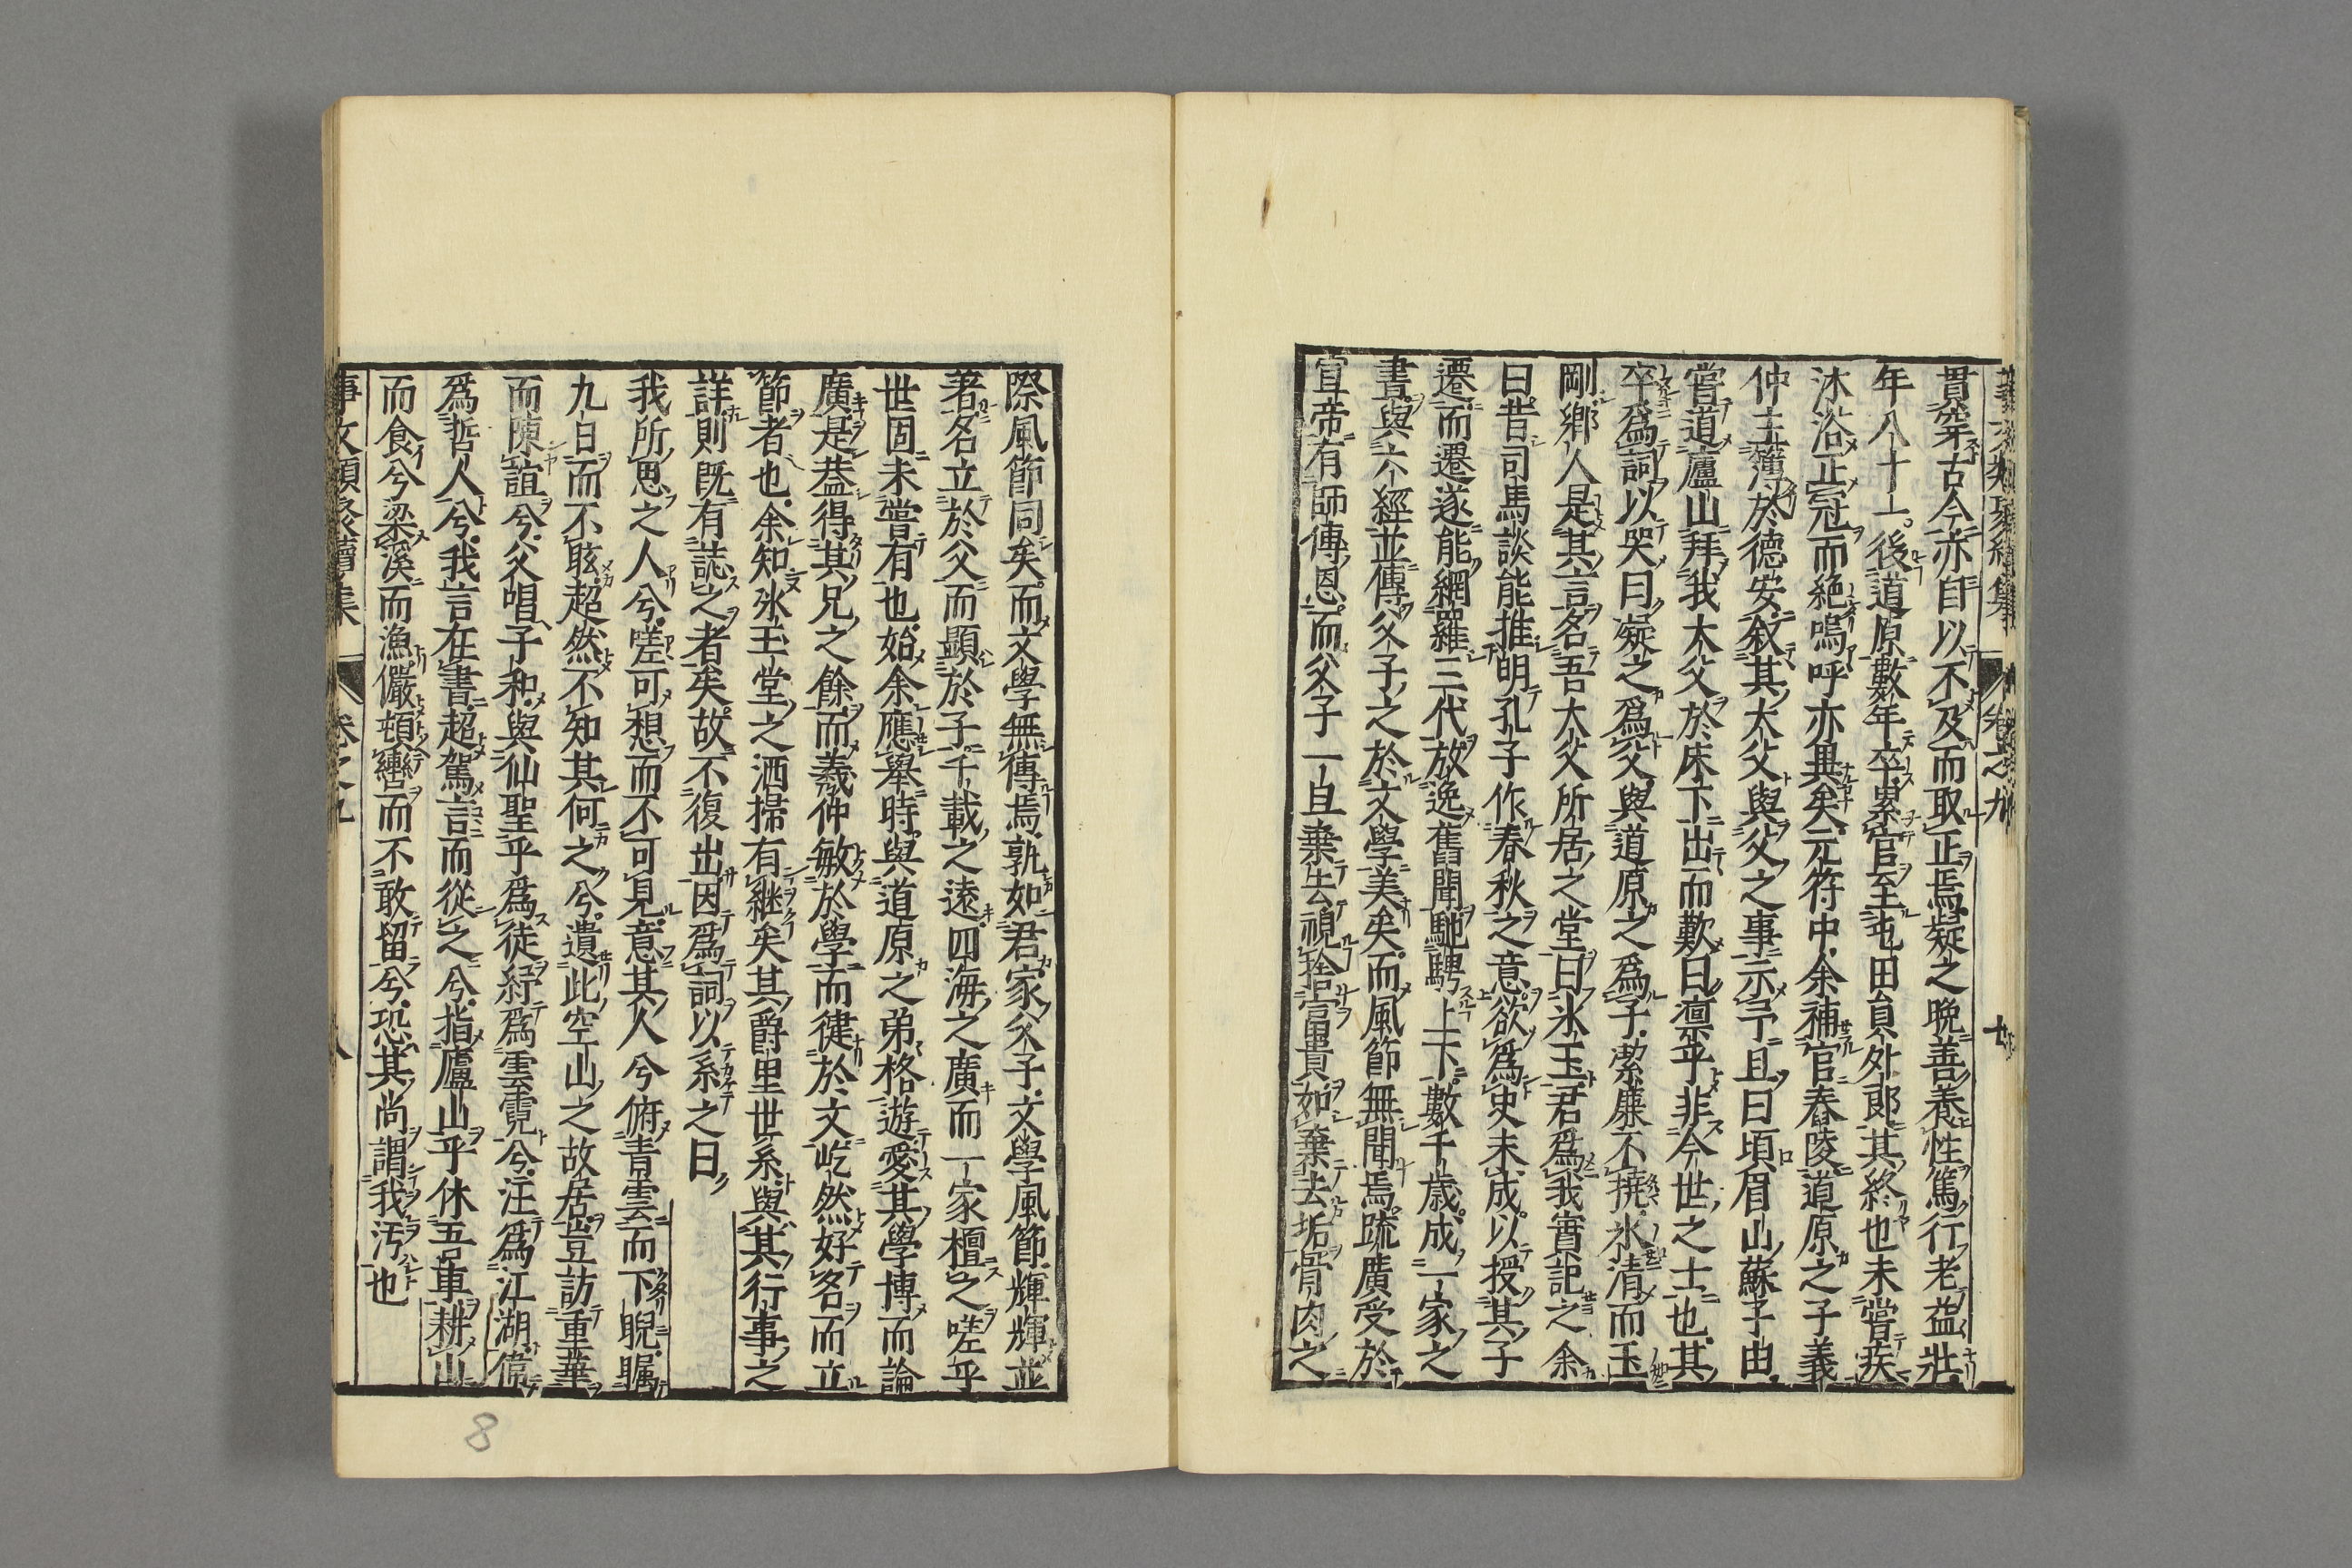 貫穿古今亦自以不及而取正焉凝之晚善養性篤行老益壯
年八十一後道原數年卒累官至屯田員外郎其終也未嘗疾
沐浴正冠而絶嗚呼亦異矣元符中余補官舂陵道原之子義
仲主簿於德安叙其大父與父之事示予且曰頃眉山蘇子由
嘗道廬山拜我大父於床下出而歎曰凛乎非今世之士也其
卒爲詞以哭曰凝之爲父與道原之爲子潔廉不撓氷清而玉
剛鄉人是其言名吾大父所居之堂曰氷玉君爲我實記之余
曰昔司馬談能推明孔子作春秋之意欲爲史未成以授其子
遷而遷遂能網羅三代放逸舊聞馳騁上下數千歳成一家之
書與六經並傳父子之於文學美矣而風節無聞焉疏廣受於
宣帝有師傅恩而父子一旦棄去視捨富貴如棄去垢骨肉之
際風節同矣而文學無傳焉孰如君家父子文學風節輝輝並
著名立於父而顯於子千載之遠四海之廣而一家檀之嗟乎
世固未嘗有也始余應舉時與道原之弟格遊愛其學博而論
廣是葢得其兄之餘而羲仲敏於學而健於文屹然好名而立
節者也余知氷玉堂之洒掃有継矣其爵里世系與其行事之
詳則既有誌之者矣故不復出因爲詞以系之曰
我所思之人兮嗟可想而不可見意其人兮俯青雲而下睨矚
九日而不眩超然不知其何之兮遺此空山之故居豈訪重華
而陳誼兮父唱子和與仙聖乎爲徒紓爲雲霓兮汪爲江湖偉
爲哲人兮我言在書超駕言而從之兮指廬山乎休吾車耕山
而食兮梁溪而漁儼頓轡而不敢留兮恐其尚謂我汚也
事文類聚續集 卷之九 八